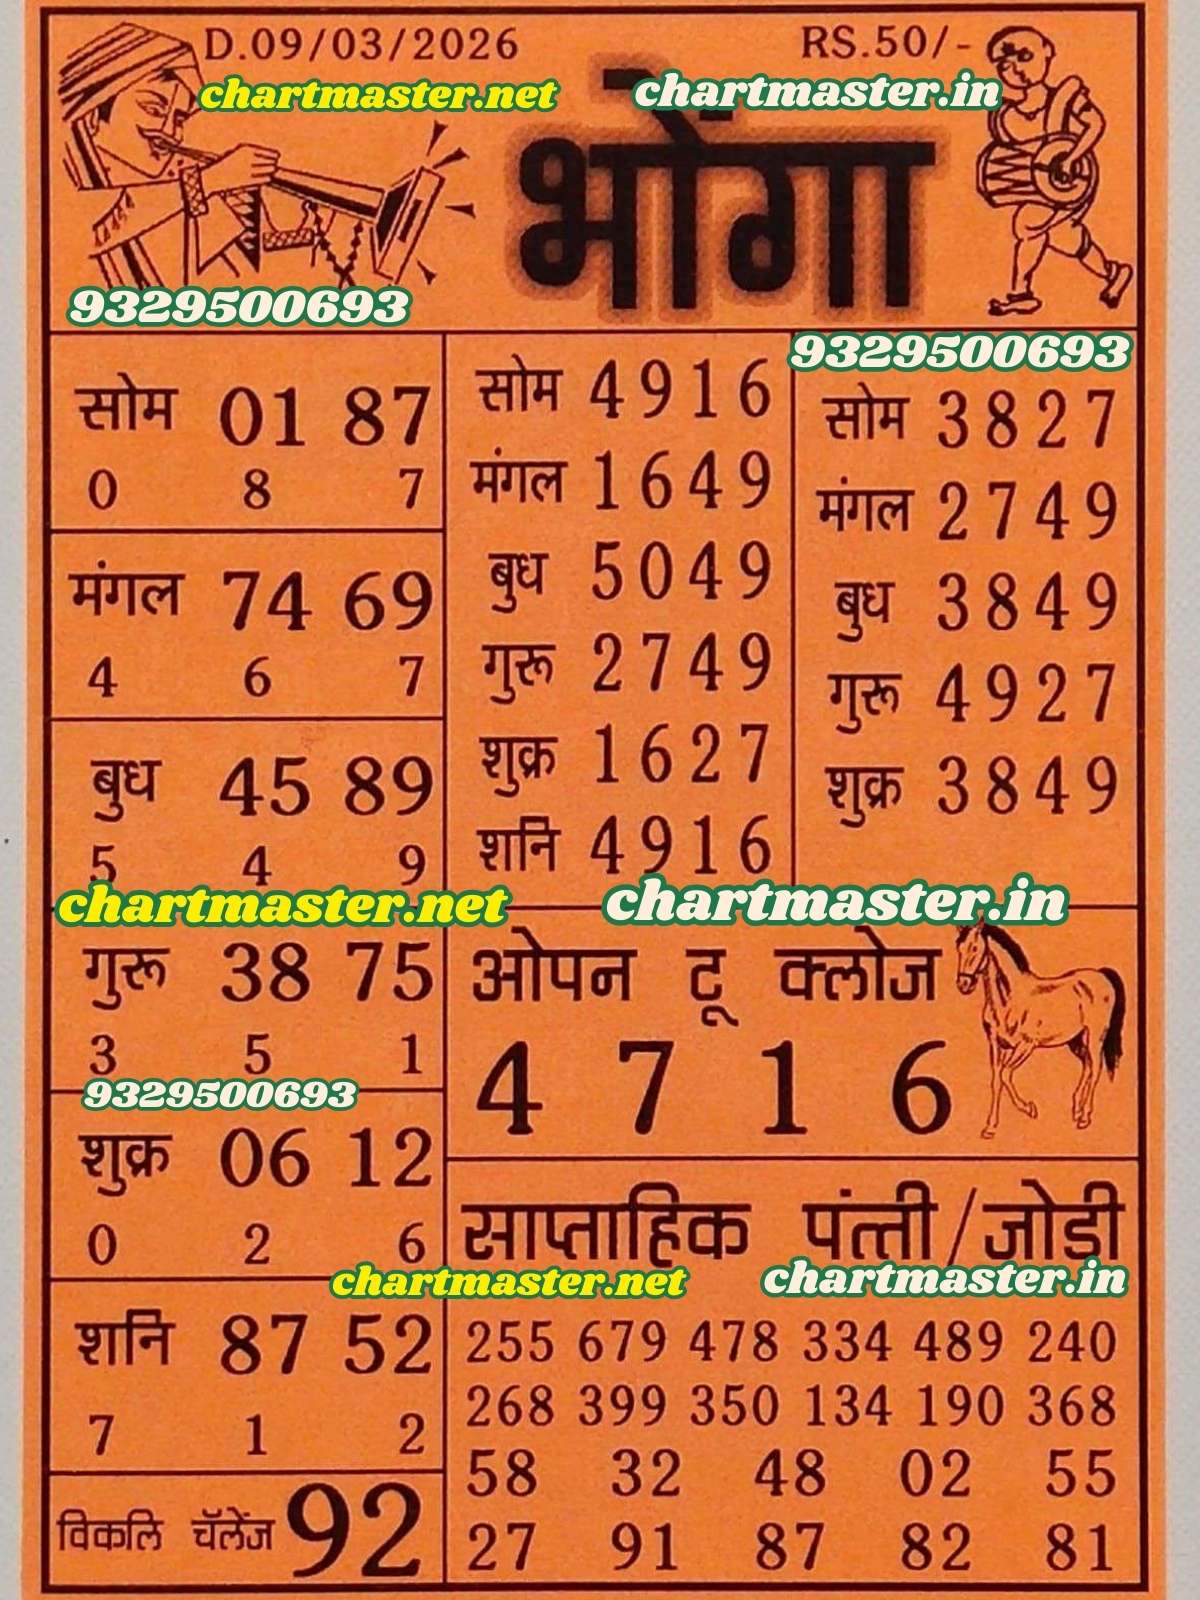 D.09/03/2026
RS.50/-
chartmaster.net
chartmaster.in
भोंगा
9329500693
9329500693
सोम 01 87
0 8 7
मंगल 74 69
4 6 7
बुध 45 89
5 4 9
chartmaster.net
गुरू 38 75
3 5 1
9329500693
शुक्र 06 12
0 2 6
शनि 87 52
7 1 2
विकलि चॅलेंज 92
सोम 4916
मंगल 1649
बुध 5049
गुरू 2749
शुक्र 1627
शनि 4916
सोम 3827
मंगल 2749
बुध 3849
गुरू 4927
शुक्र 3849
chartmaster.in
ओपन टू क्लोज
4 7 1 6
साप्ताहिक पंत्ती/जोडी
chartmaster.net
chartmaster.in
255 679 478 334 489 240
268 399 350 134 190 368
58 32 48 02 55
27 91 87 82 81